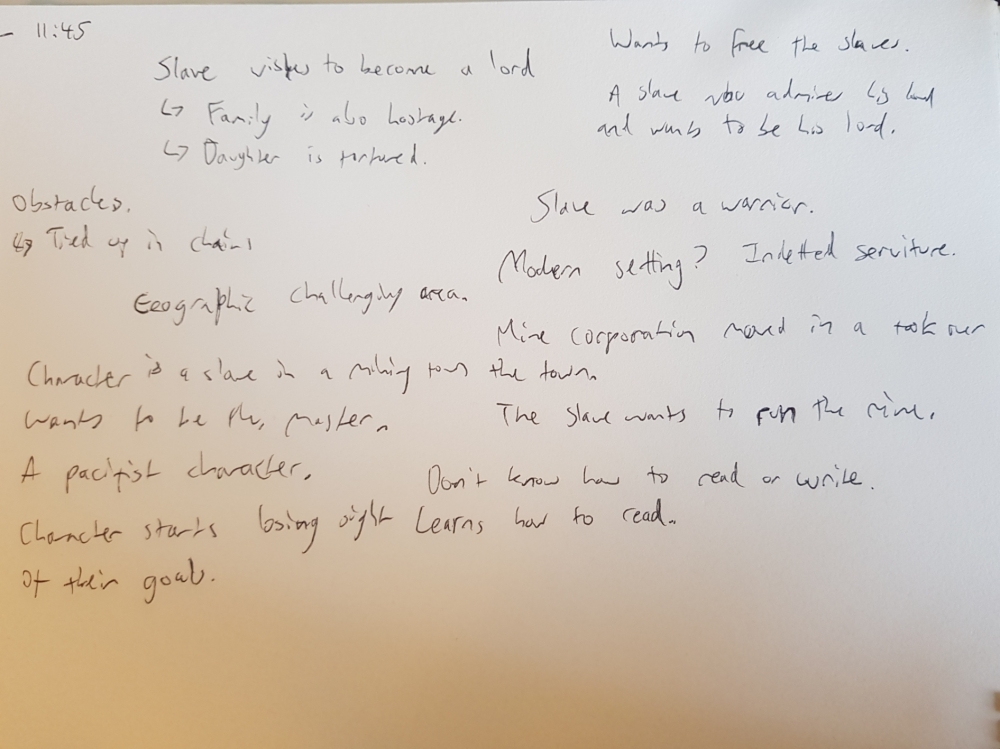 - 11:45
Slave wishes to become a lord
↳ Family is also hostage.
↳ Daughter is tortured.
Wants to free the slaves.
A slave who admires his lord
and wants to be his lord.
Obstacles.
↳ Tied up in chains
Geographic challenging area.
Slave was a warrior.
Modern setting? Indetted serviture.
Mine corporation moved in a took over
the town.
Character is a slave in a mining town
wants to be the master.
The slave wants to run the mine.
A pacifist character.
Don't know how to read or write.
Learns how to read.
Character starts losing sight
of their goals.